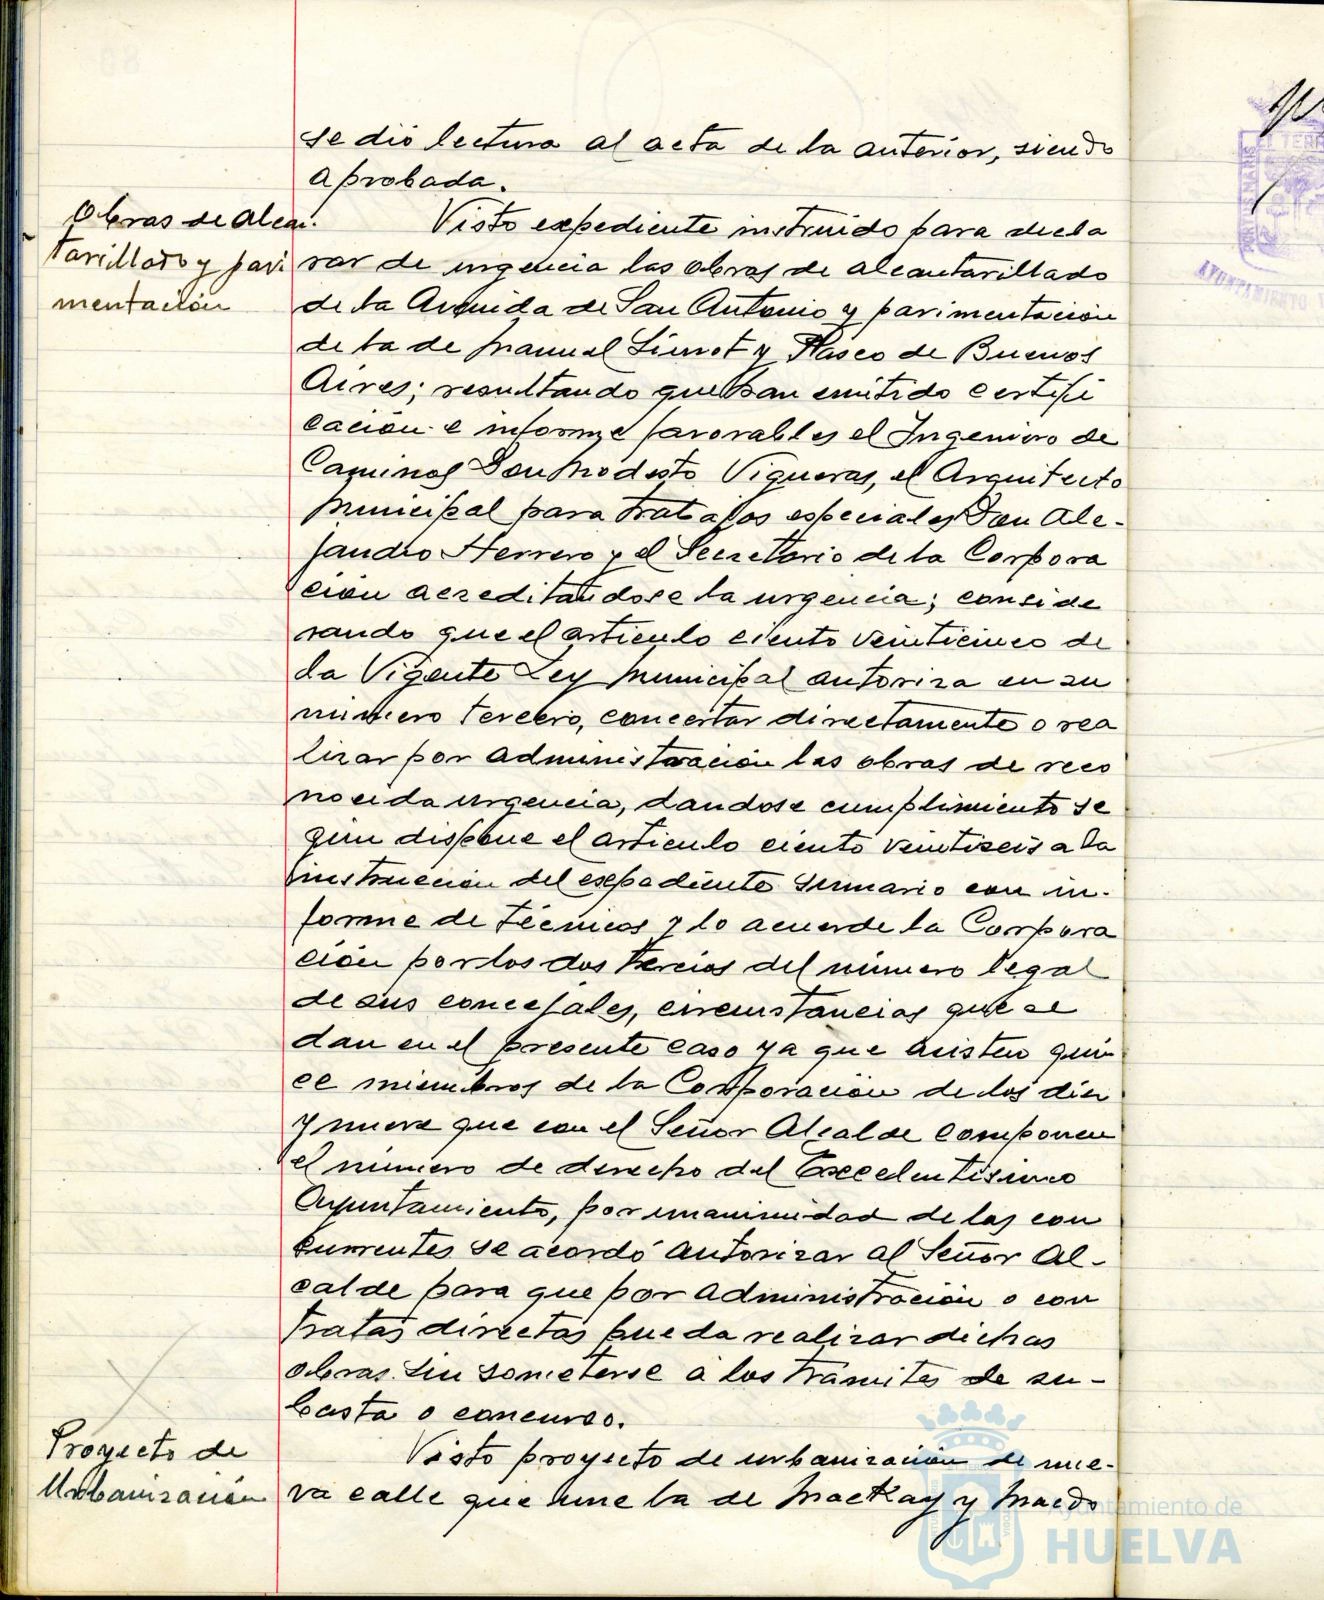 se dió lectura al acta de la anterior, siendo
aprobada.
Obras de Alcan.
tarillado y pavi
mentación
Visto expediente instruido para decla
rar de urgencia las obras de alcantarillado
de la Avenida de San Antonio y pavimentación
de la de Manuel Siurot y Paseo de Buenos
Aires; resultando que han emitido certifi
cación e informe favorables el Ingeniero de
Caminos Don Modesto Vigueras, el Arquitecto
Municipal para trabajos especiales Don Ale-
jandro Herrero y el Secretario de la Corpora
ción acreditandose la urgencia; conside
rando que el articulo ciento veinticinco de
la Vigente Ley Municipal autoriza en su
número tercero, concertar directamente o rea
lizar por administración las obras de reco
nocida urgencia, dandose cumplimiento se
gún dispone el articulo ciento veintiseis a la
instrucción del expediente sumario con in-
forme de técnicos y lo acuerde la Corpora
ción por los dos tercios del número legal
de sus concejales, circunstancias que se
dan en el presente caso ya que asisten quin
ce miembros de la Corporación de los diez
y nueve que con el Señor Alcalde componen
el número de derecho del Excelentisimo
Ayuntamiento, por unanimidad de los con
currentes se acordó autorizar al Señor Al-
calde para que por administración o con
tratas directas pueda realizar dichas
obras sin someterse a los trámites de su-
basta o concurso.
Proyecto de
Urbanización
Visto proyecto de urbanización de nue-
va calle que une la de Mackay y Macdo
Ayuntamiento de
HUELVA
AYUNTAMIENTO